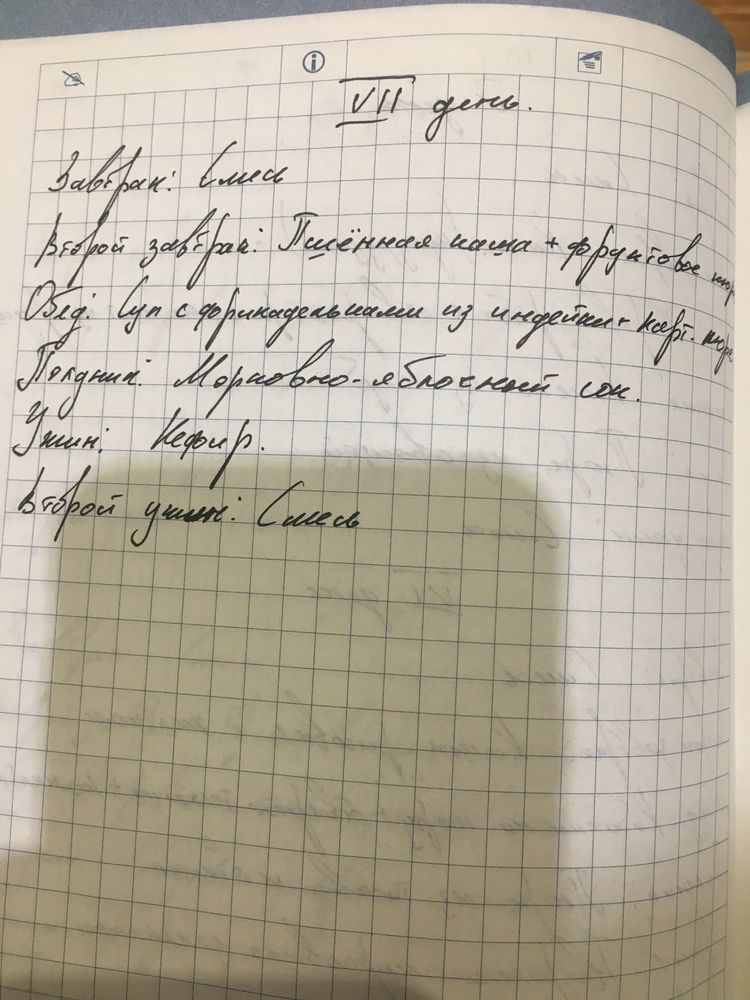 VII день.
Завтрак: Смесь
Второй завтрак: Пшённая каша + фруктовое пюре
Обед: Суп с фрикадельками из индейки + карт. пюре
Полдник: Морковно-яблочный сок.
Ужин: Кефир.
Второй ужин: Смесь